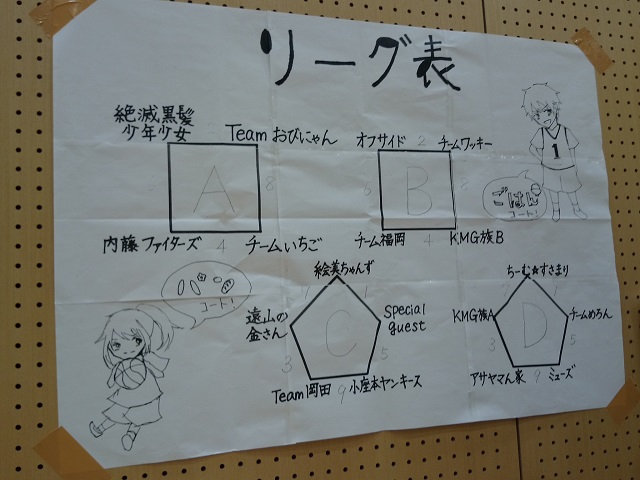 リーグ表
絶滅黒髪
少年少女
Teamおびにゃん
オフサイド
2
チームワッキー
A
8
B
8
1
ごはん
コート!
内藤ファイターズ
4
チームいちご
チーム福岡
4
KMG族B
コート!
絵美ちゃんず
ちーむ★すさまり
遠山の
金さん
Special
guest
KMG族A
チームめろん
C
D
3
5
3
5
Team岡田
9
小座本ヤンキース
アサヤマん家
9
ミューズ